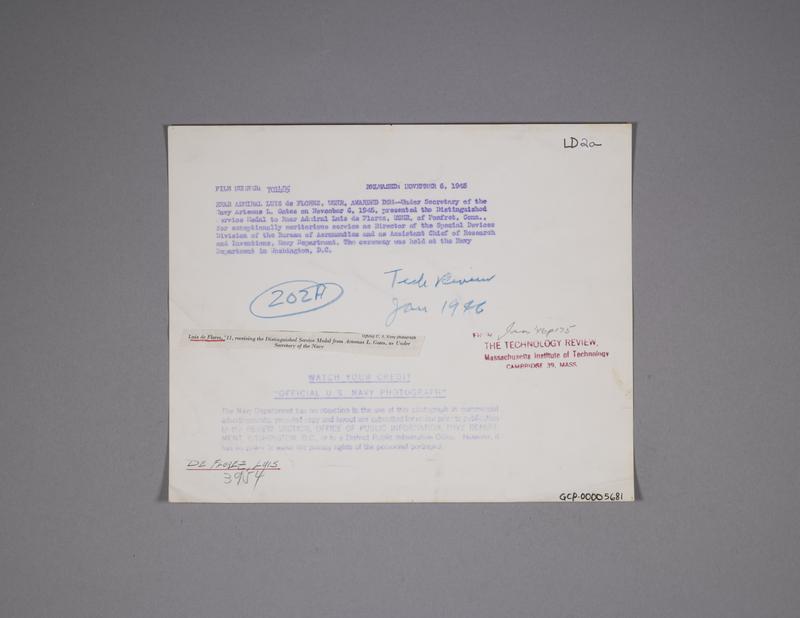 LD2a
FILE NUMBER: 701405 RELEASED: NOVEMBER 6, 1945
REAR ADMIRAL LUIS de FLOREZ, USNR, AWARDED DSM—Under Secretary of the
Navy Artemus L. Gates on November 6, 1945, presented the Distinguished
Service Medal to Rear Admiral Luis de Florez, USNR, of Pomfret, Conn.,
for exceptionally meritorious service as Director of the Special Devices
Division of the Bureau of Aeronautics and as Assistant Chief of Research
and Inventions, Navy Department. The ceremony was held at the Navy
Department in Washington, D.C.
202A
Tech Review
Jan 1946
Official U. S. Navy photograph
Luis de Florez, '11, receiving the Distinguished Service Medal from Artemus L. Gates, as Under
Secretary of the Navy
FROM Jan '46 p175
THE TECHNOLOGY REVIEW,
Massachusetts Institute of Technology
CAMBRIDGE 39, MASS.
WATCH YOUR CREDIT
"OFFICIAL U.S. NAVY PHOTOGRAPH"
The Navy Department has no objection to the use of this photograph in commercial
advertisements, provided copy and layout are submitted for review prior to publication
to the REVIEW SECTION, OFFICE OF PUBLIC INFORMATION, NAVY DEPART-
MENT, WASHINGTON, D.C., or to a District Public Information Office. However, it
has no power to waive the privacy rights of the personnel portrayed.
DE FLOREZ, LUIS
3954
GCP-00005681